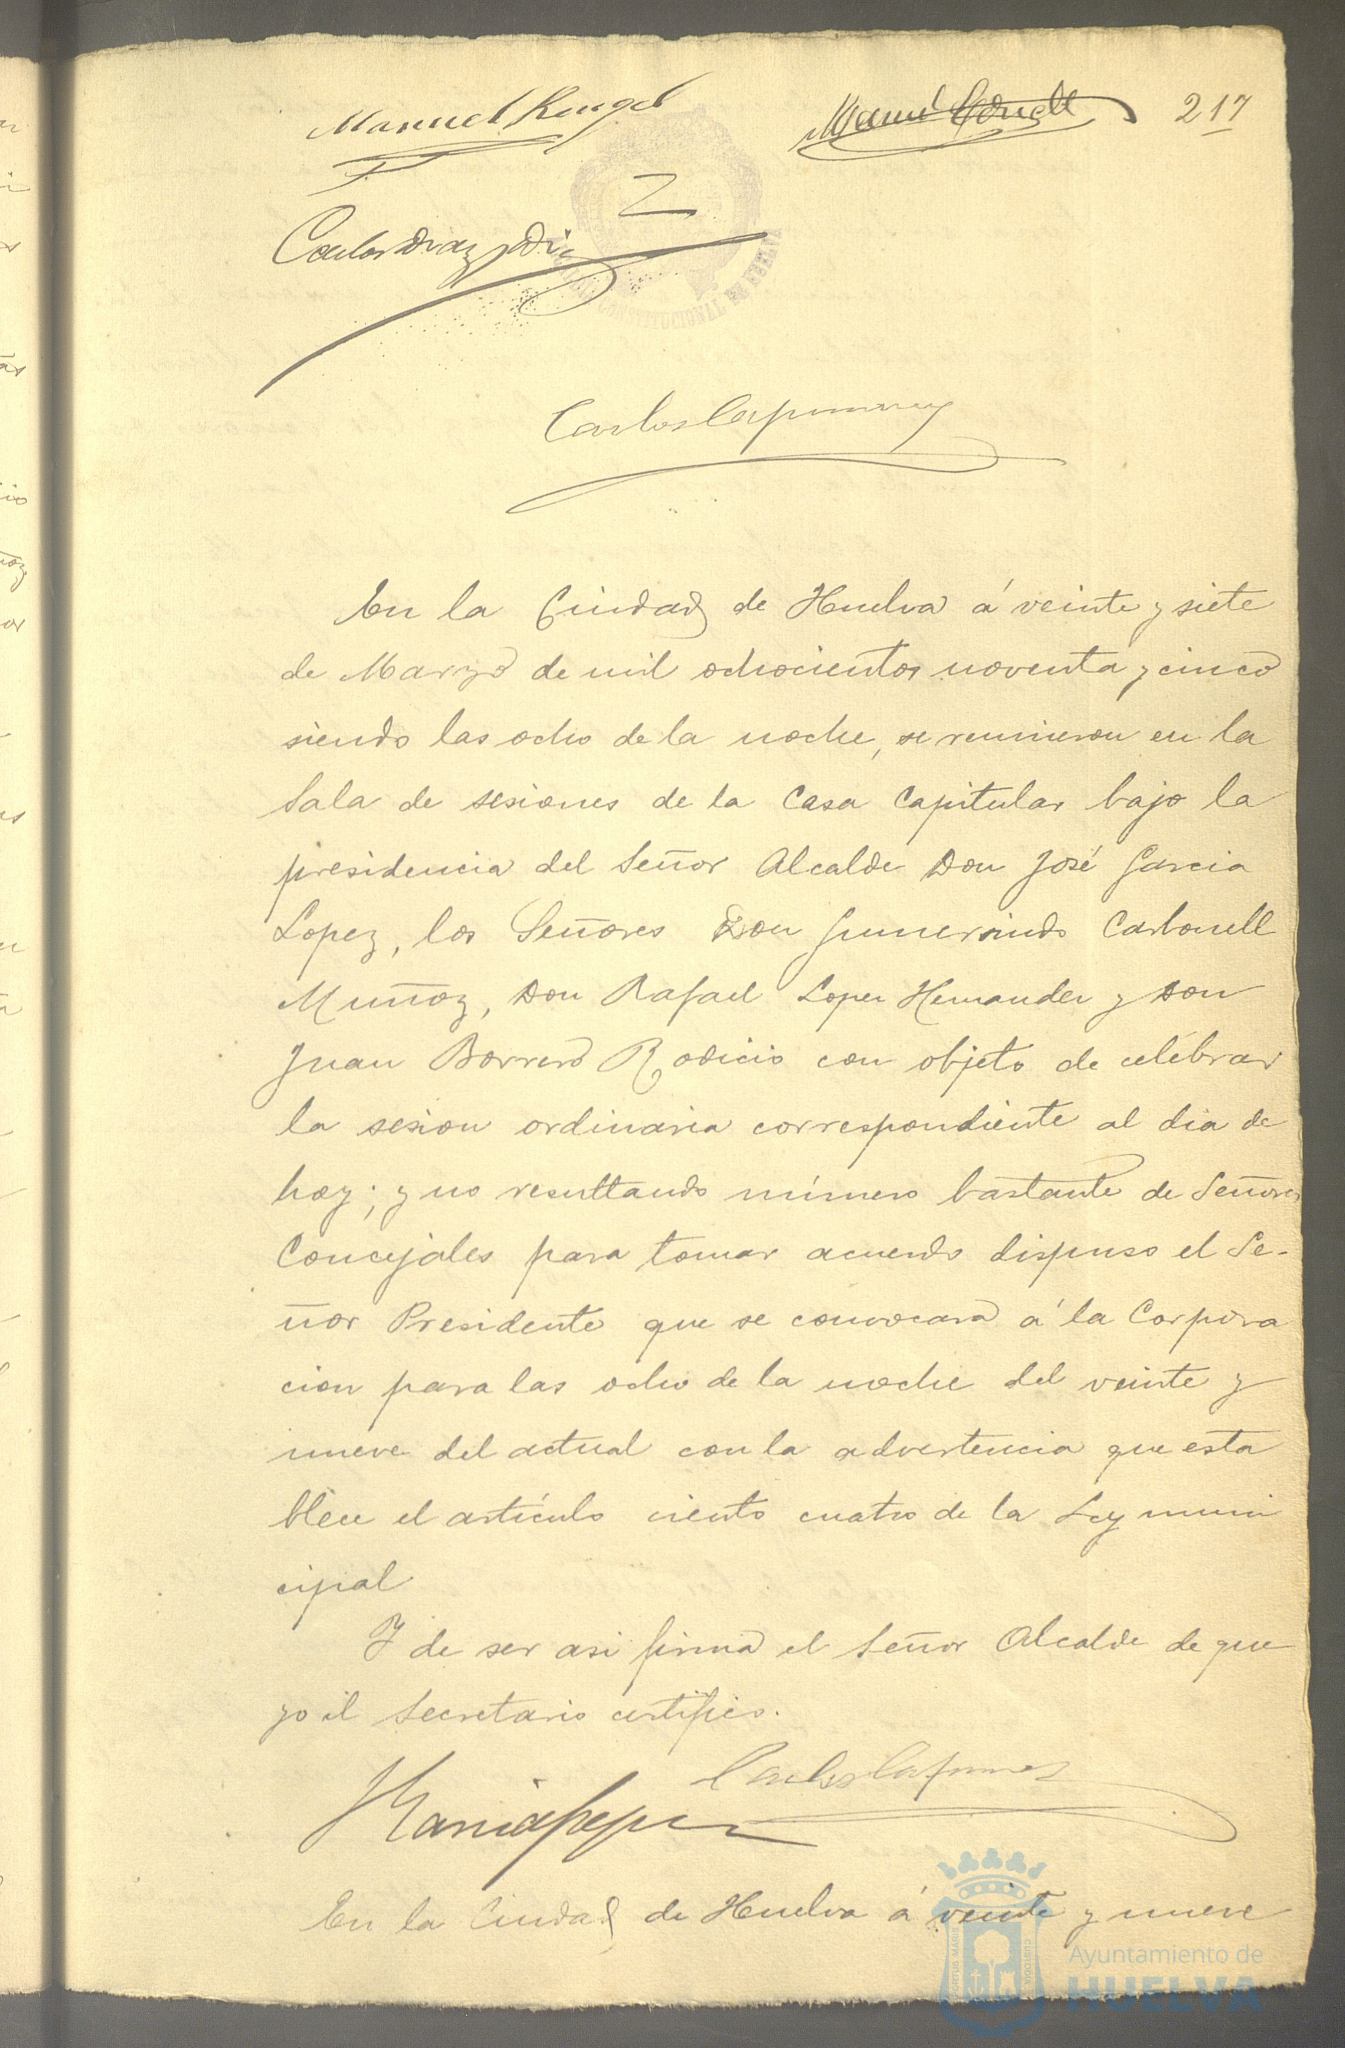 217
Manuel Rengel
Carlos Diaz
CONSTITUCIONAL DE HUELVA
Carlos
En la Ciudad de Huelva á veinte y siete
de Marzo de mil ochocientos noventa y cinco
siendo las ocho de la noche, se reunieron en la
Sala de sesiones de la Casa Capitular bajo la
presidencia del Señor Alcalde Don José Garcia
Lopez, los Señores Don Gumersindo Carbonell
Muñoz, Don Rafael Lopez Hernandez y Don
Juan Borrero Rodicio con objeto de celebrar
la sesion ordinaria correspondiente al dia de
hoy; y no resultando número bastante de Señores
Concejales para tomar acuerdo dispuso el Se-
ñor Presidente que se convocara á la Corpora
cion para las ocho de la noche del veinte y
nueve del actual con la advertencia que esta
blece el artículo ciento cuatro de la Ley muni
cipal
Y de ser asi firma el Señor Alcalde de que
yo el Secretario certifico.
Carlos
En la Ciudad de Huelva á veinte y nueve
Ayuntamiento de
HUELVA